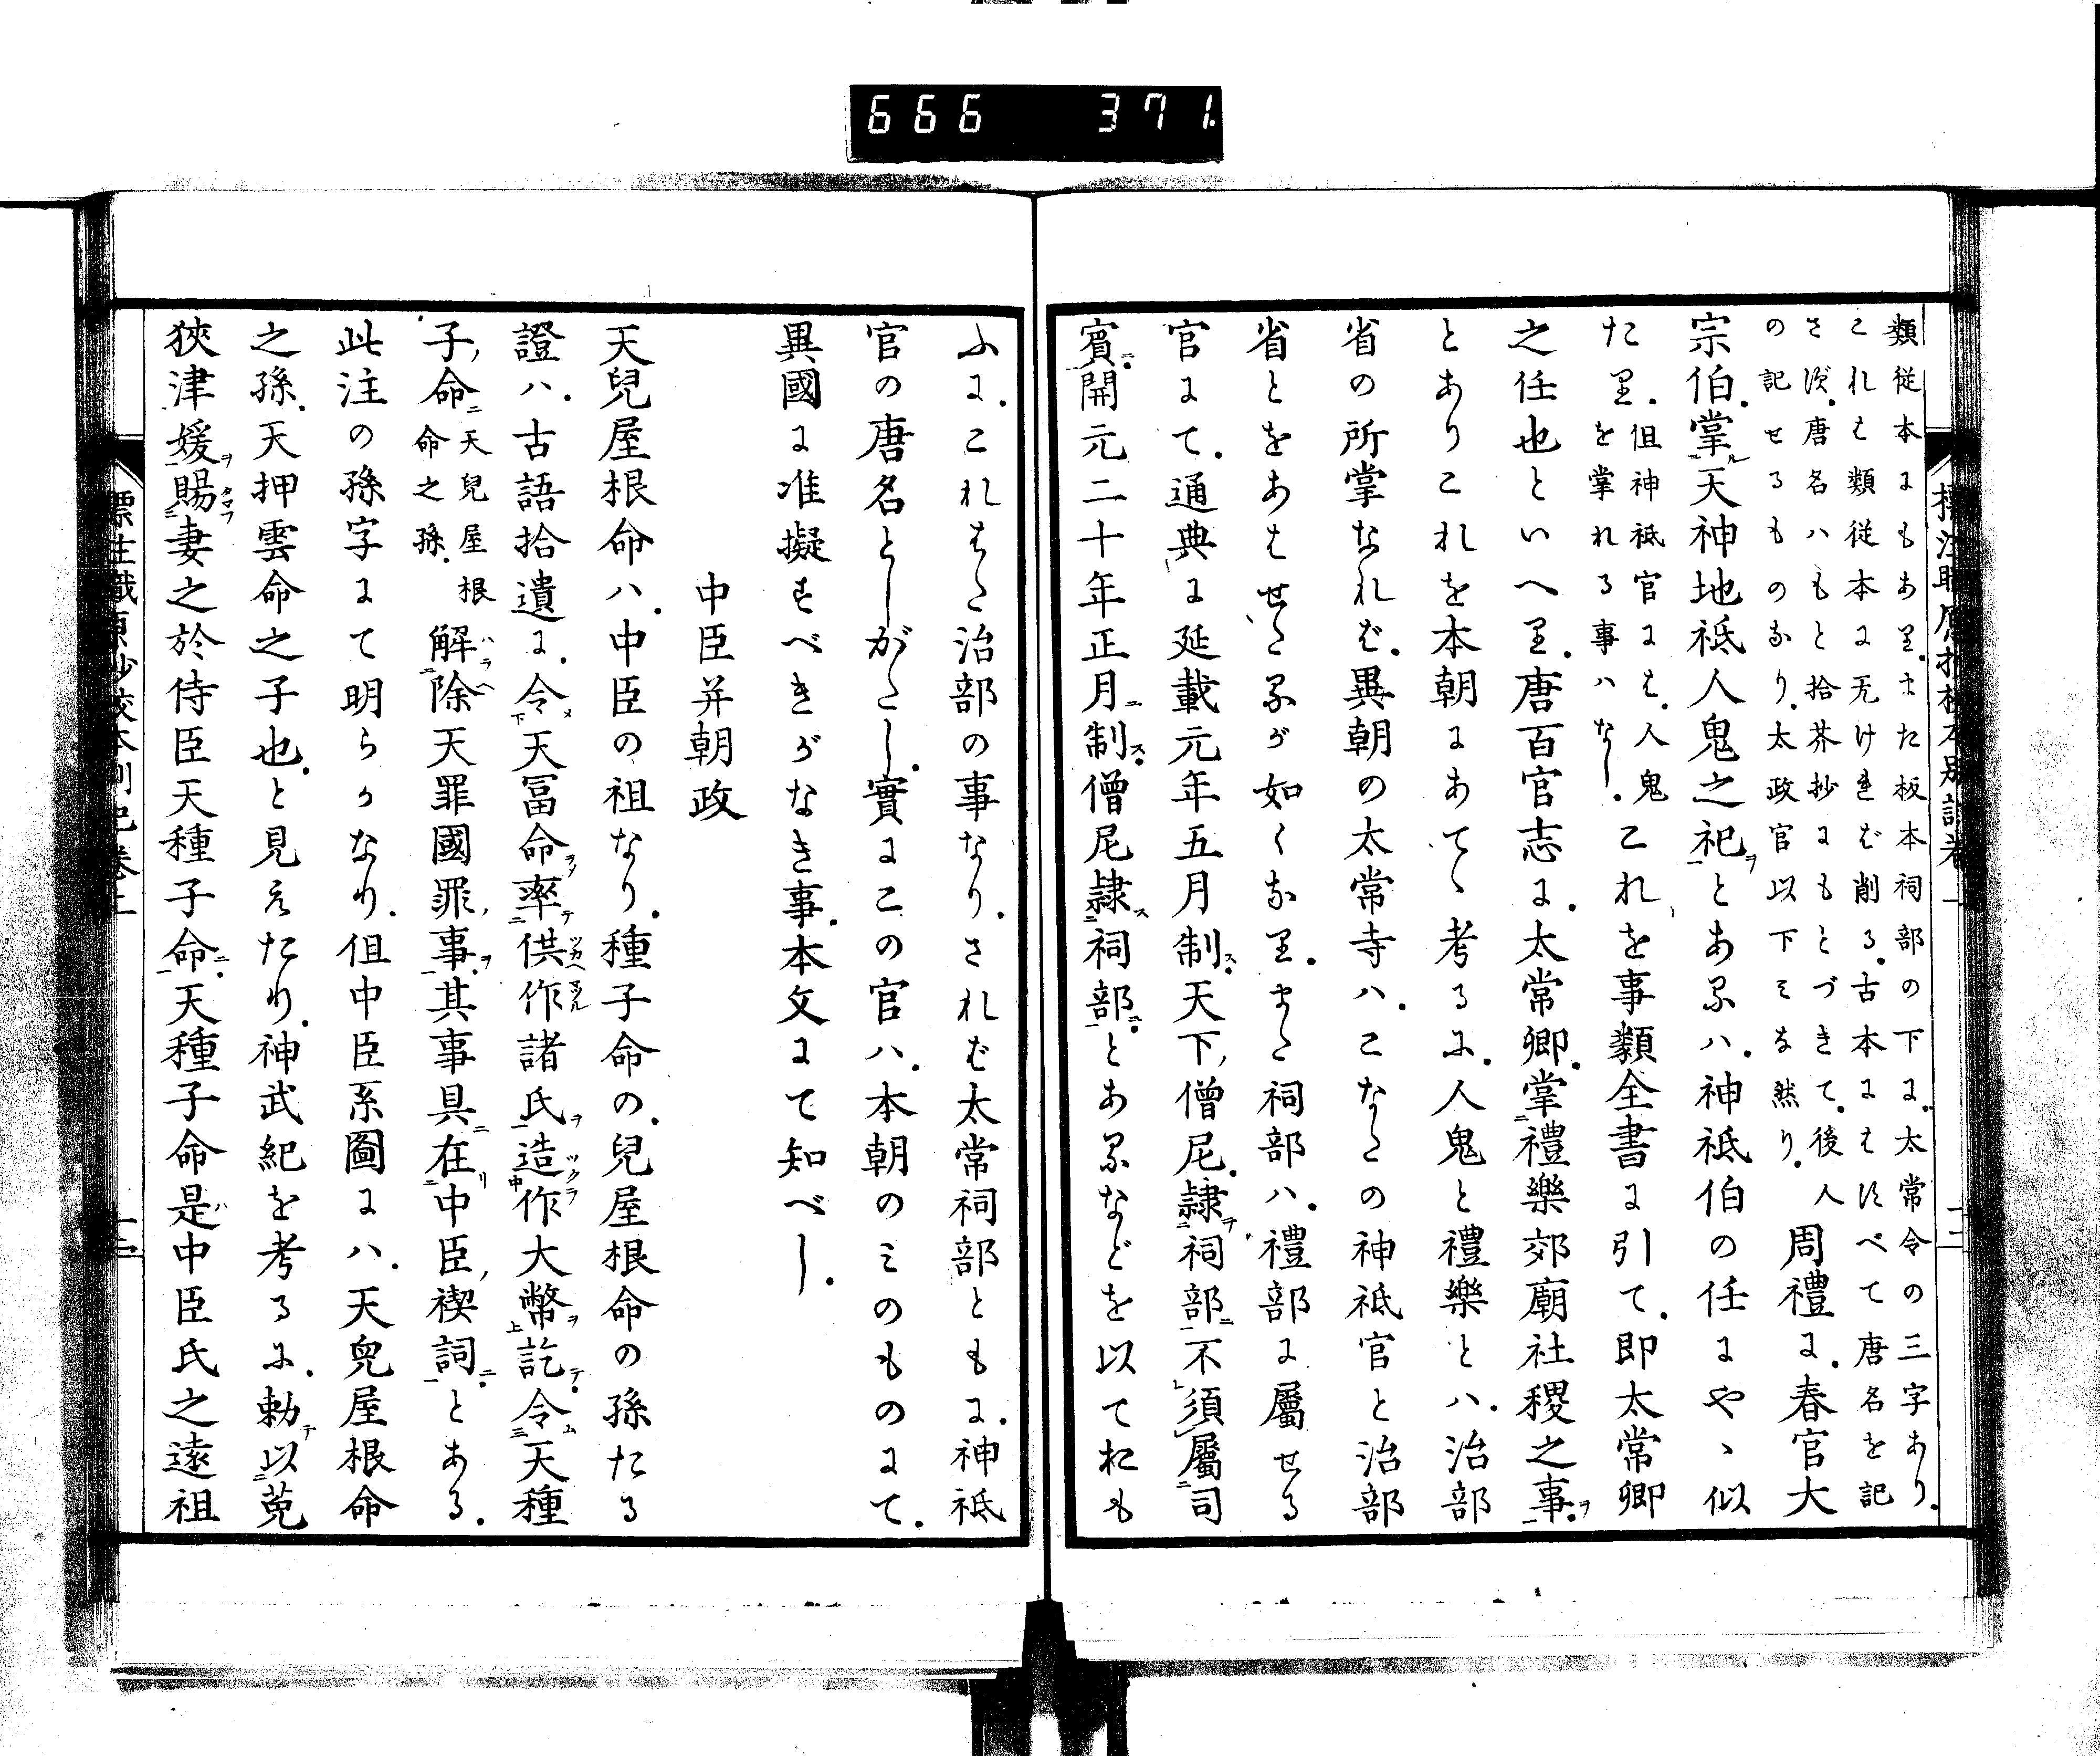 666 371
標注職原抄校本別記卷上
類従本にもあり。また板本祠部の下に。太常令の三字あり。
これは類従本に无ければ削る。古本にはすべて唐名を記
さず。唐名ハもと拾芥抄にもとづきて。後人
の記せるものなり。太政官以下みな然り。
周禮に。春官大
宗伯。掌天神地祇人鬼之祀とあるハ。神祇伯の任にやゝ似
たり。
但神祇官には。人鬼
を掌れる事ハなし。
これを事類全書に引て。即太常卿
之任也といへり。唐百官志に。太常卿。掌禮樂郊廟社稷之事。
とありこれを本朝にあてゝ考るに。人鬼と禮樂とハ。治部
省の所掌なれば。異朝の太常寺ハ。こなたの神祇官と治部
省とをあはせたるが如くなり。また祠部ハ。禮部に屬せる
官にて。通典に延載元年五月制。天下僧尼。隷祠部不須屬司
賓。開元二十年正月制。僧尼隷祠部。とあるなどを以ておも
ふに。これはた治部の事なり。されば太常祠部ともに。神祇
官の唐名としがたし。實にこの官ハ。本朝のミのものにて。
異國に准擬すべきがなき事。本文にて知べし。
中臣并朝政
天兒屋根命ハ。中臣の祖なり。種子命の。兒屋根命の孫たる
證ハ。古語拾遺に。令天冨命率供作諸氏造作大幣訖。令天種
子命
天兒屋根
命之孫。
解除天罪國罪事。其事具在中臣禊詞。とある。
此注の孫字にて明らかなり。但中臣系圖にハ。天兒屋根命
之孫。天押雲命之子也。と見えたり。神武紀を考るに。勅以菟
狹津媛賜妻之於侍臣天種子命。天種子命是中臣氏之遠祖
標注職原抄校本別記卷上